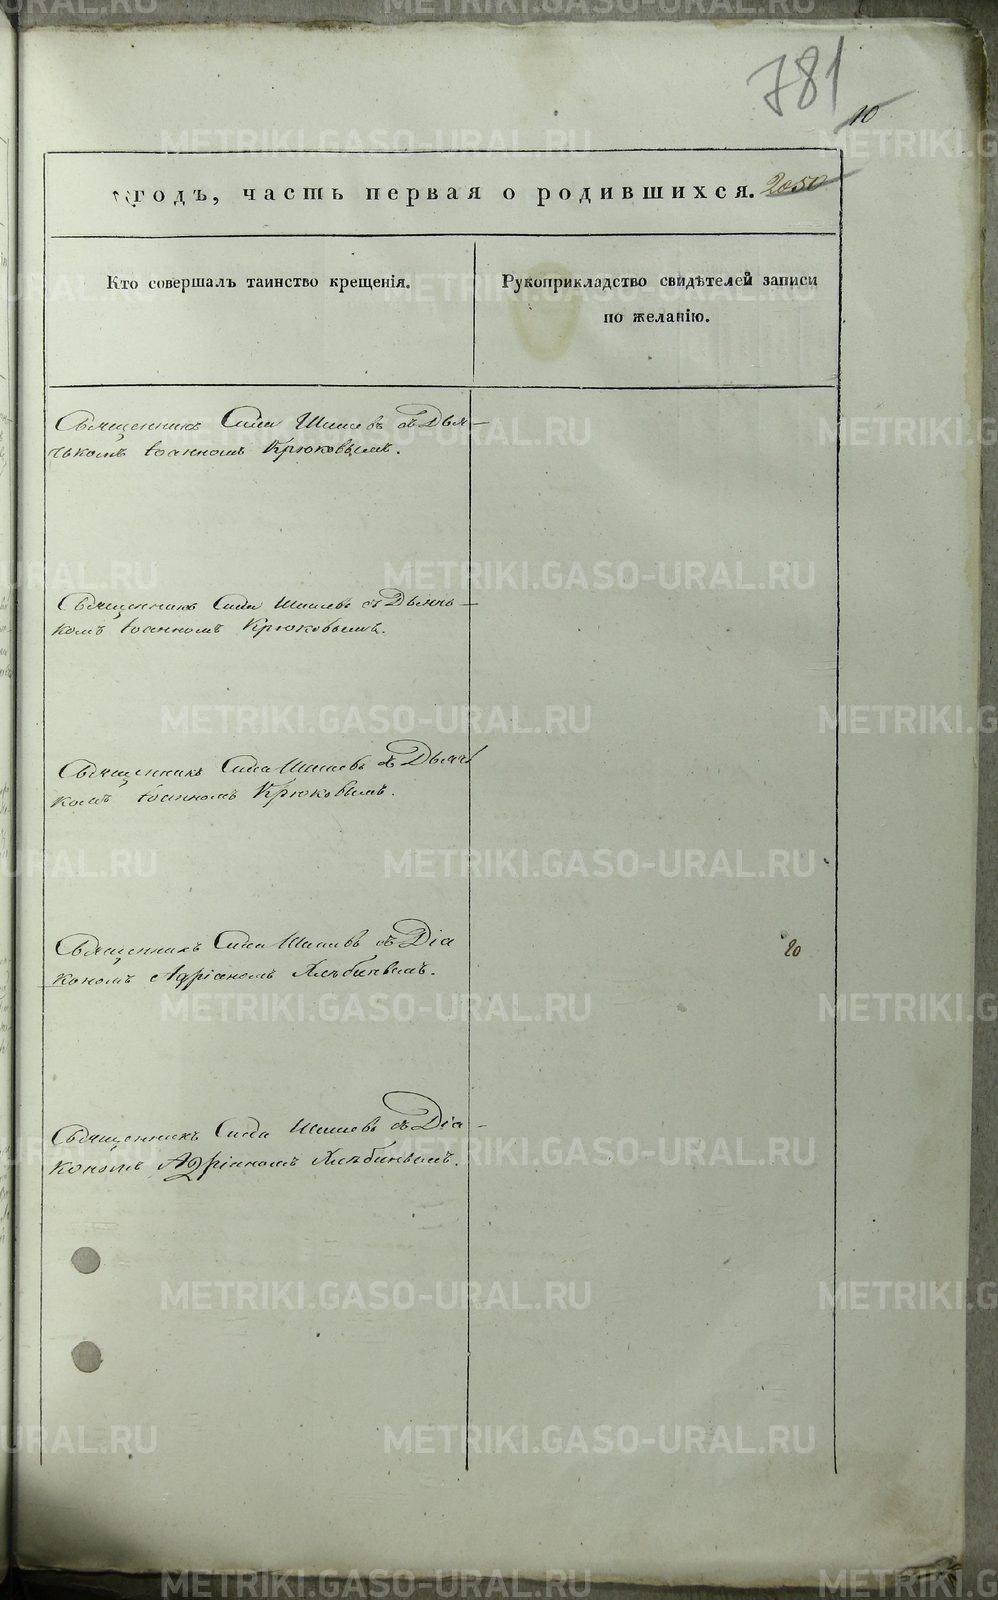 781
10
годъ, часть первая о родившихся. 2050
Кто совершалъ таинство крещенія.
Рукоприкладство свидѣтелей записи
по желанію.
Священникъ Сила Шишевъ съ Дья-
чькомъ Іоанномъ Крюковымъ.
Священникъ Сила Шишевъ съ Дьячь-
комъ Іоанномъ Крюковымъ.
Священникъ Сила Шишевъ съ Дьячь
комъ Іоанномъ Крюковымъ.
Священникъ Сила Шишевъ съ Діа
кономъ Адріаномъ
20
Священникъ Сила Шишевъ съ Діа-
кономъ Адріаномъ
METRIKI.GASO-URAL.RU